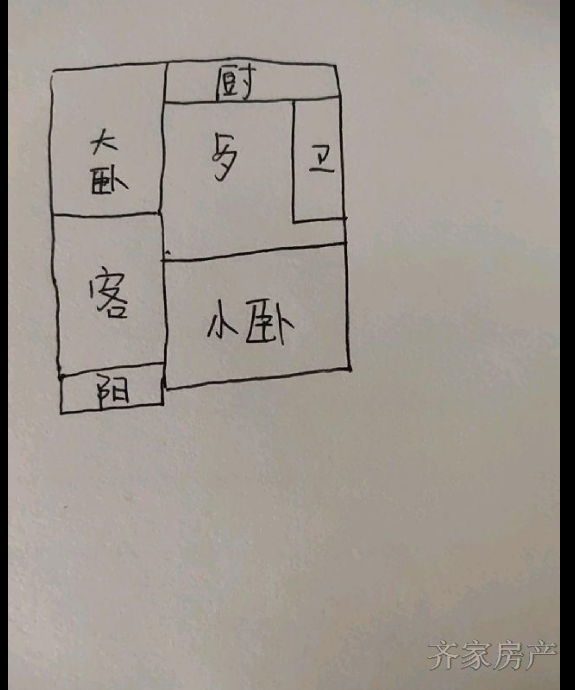 厨
大
卧
卫
客
小卧
阳
齐家房产